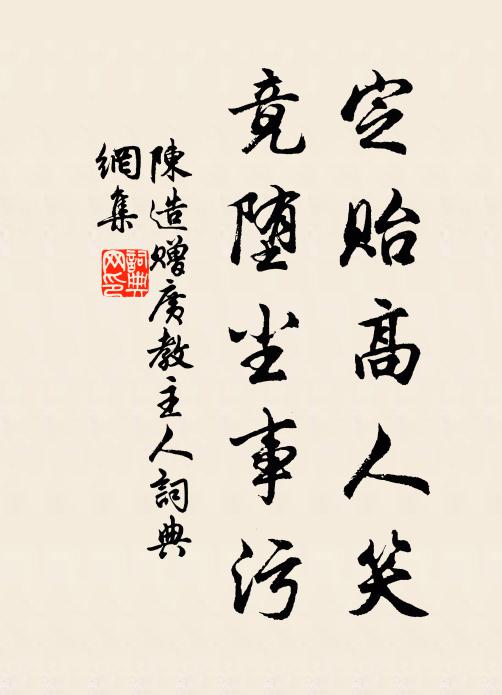 定贻高人笑
竟堕尘事污
陳造赠廣教主人詞典
網集
詞典網印